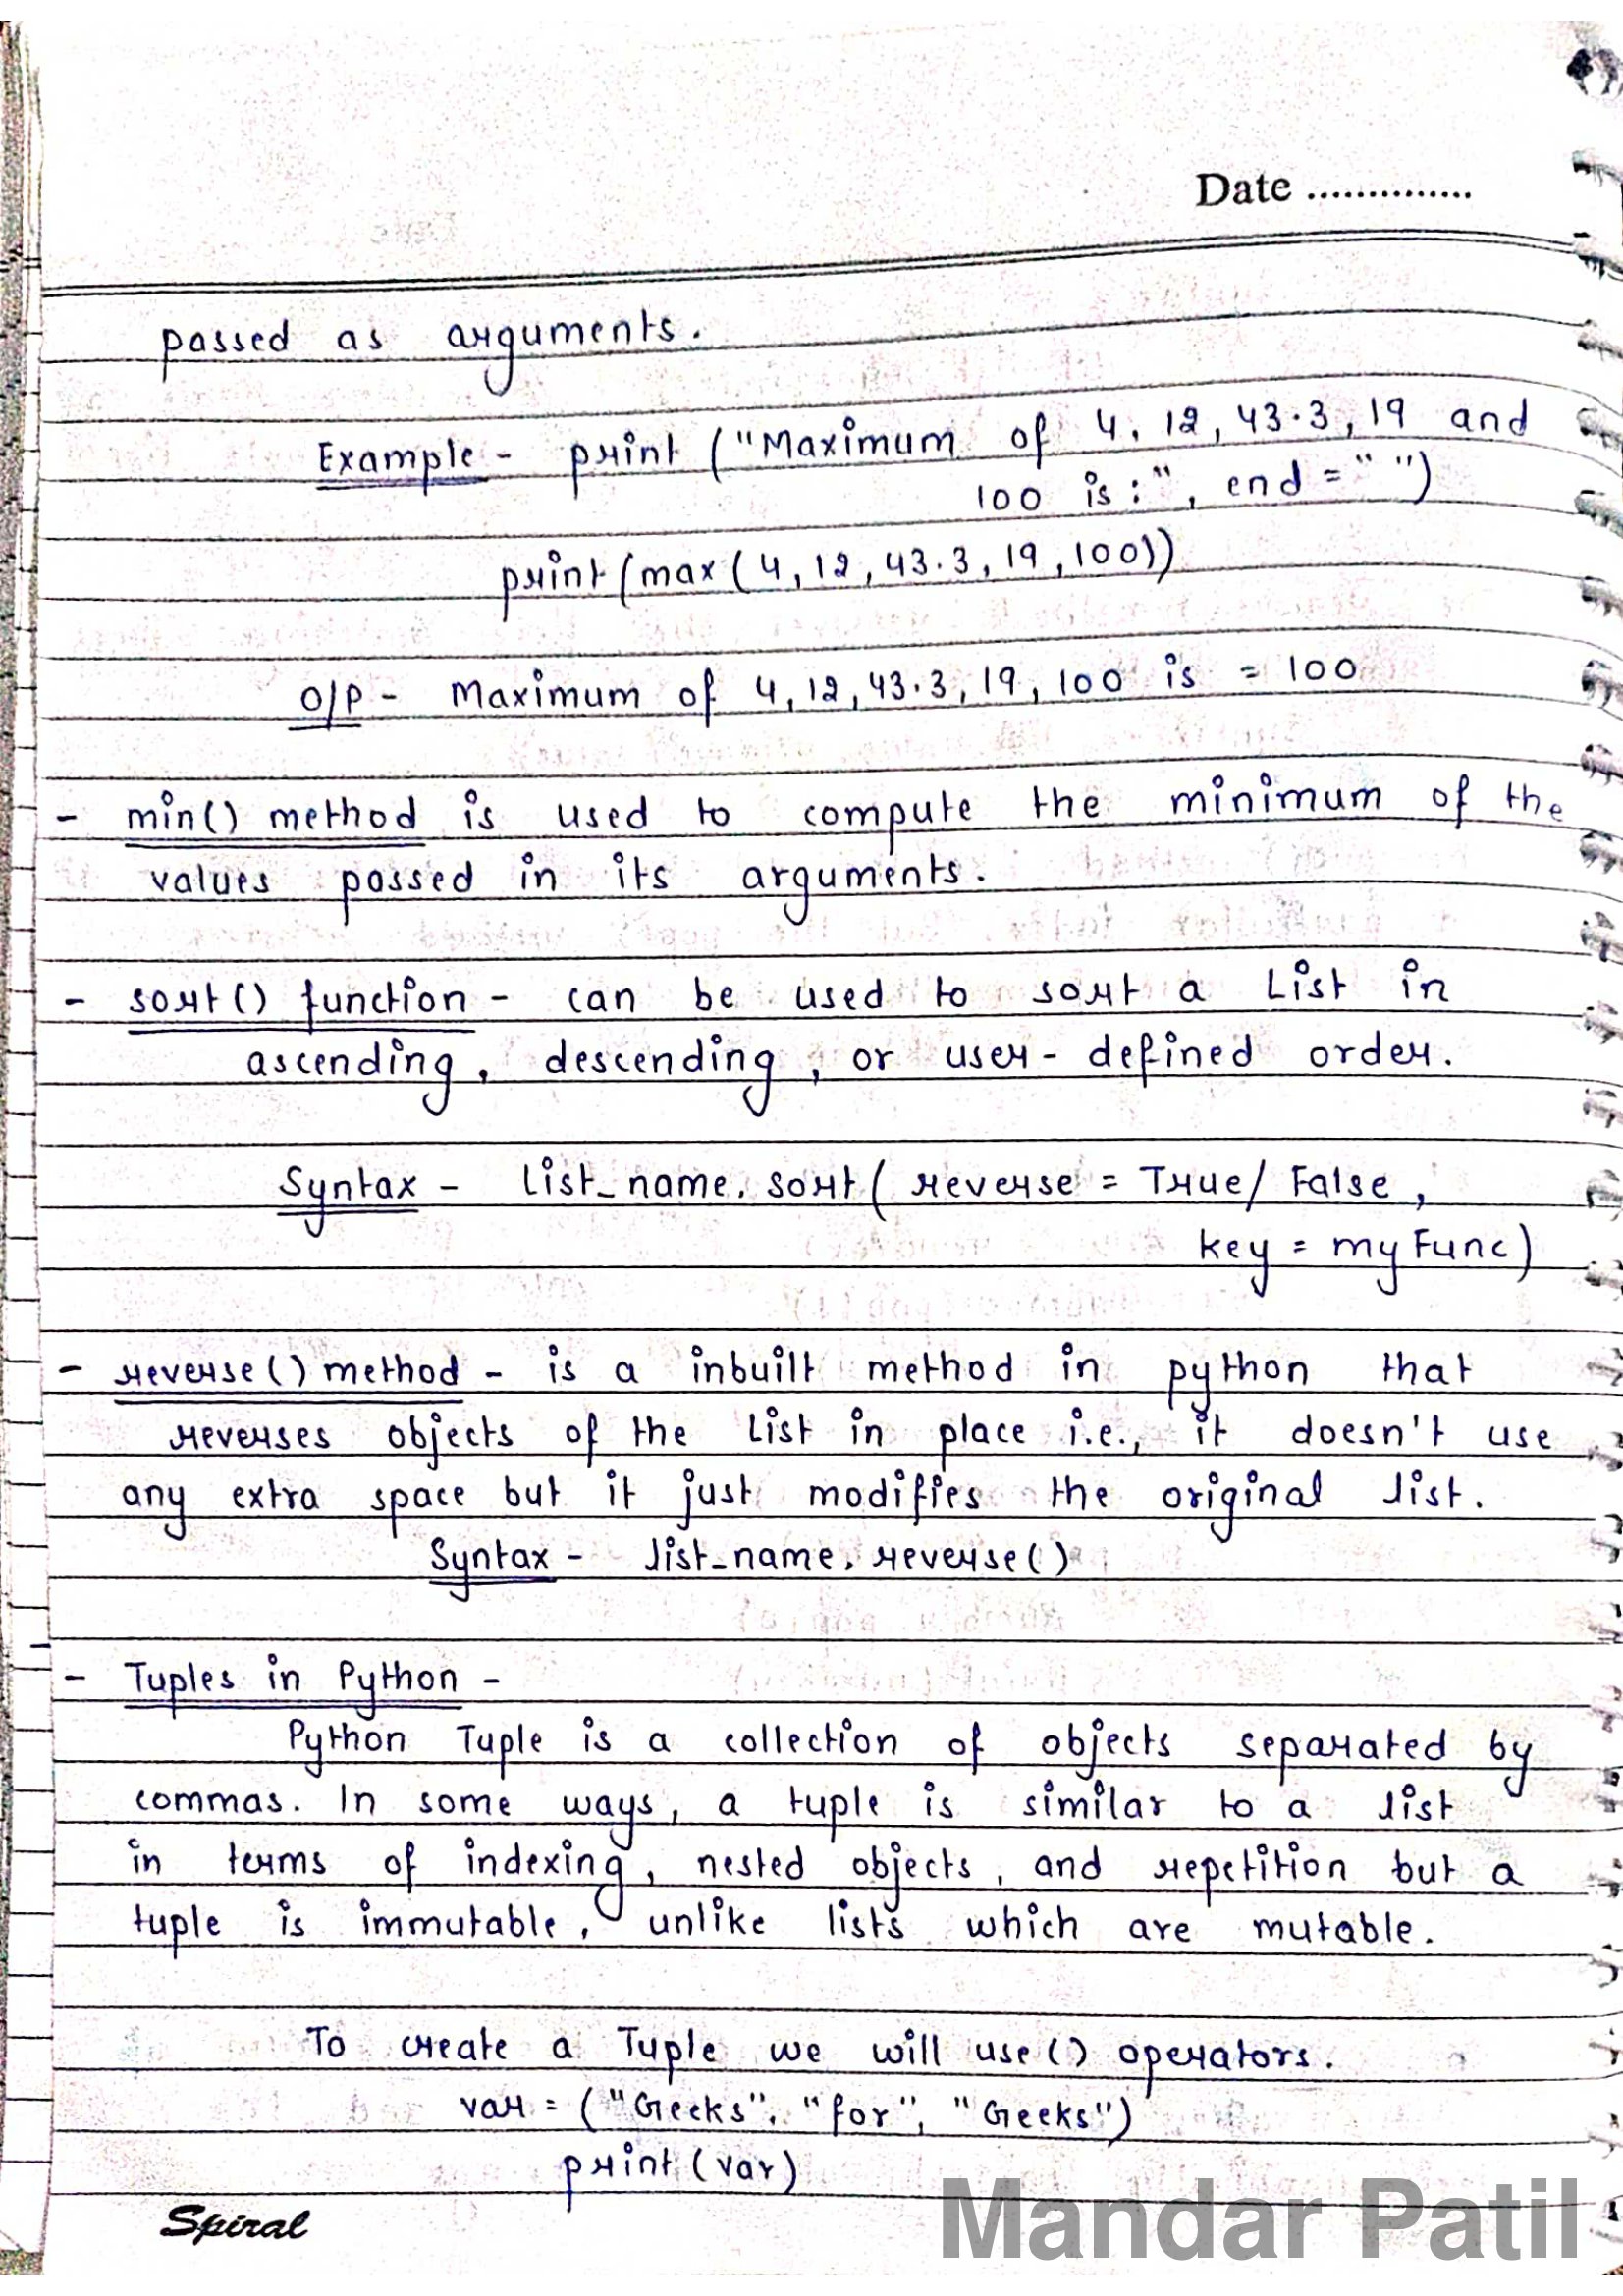 Date ..............
passed as arguments.
Example - print ("Maximum of 4, 12, 43.3, 19 and
100 is :", end = " ")
print (max (4, 12, 43.3, 19, 100))
O/P - Maximum of 4, 12, 43.3, 19, 100 is = 100
- min() method is used to compute the minimum of the
values passed in its arguments.
- sort() function - can be used to sort a List in
ascending, descending, or user-defined order.
Syntax - List_name.sort( reverse = True/ False,
key = myFunc)
- reverse() method - is a inbuilt method in python that
reverses objects of the List in place i.e., it doesn't use
any extra space but it just modifies the original list.
Syntax - list_name.reverse()
- Tuples in Python -
Python Tuple is a collection of objects separated by
commas. In some ways, a tuple is similar to a list
in terms of indexing, nested objects, and repetition but a
tuple is immutable, unlike lists which are mutable.
To create a Tuple we will use () operators.
var = ("Geeks", "for", "Geeks")
print (var)
Spiral
Mandar Patil